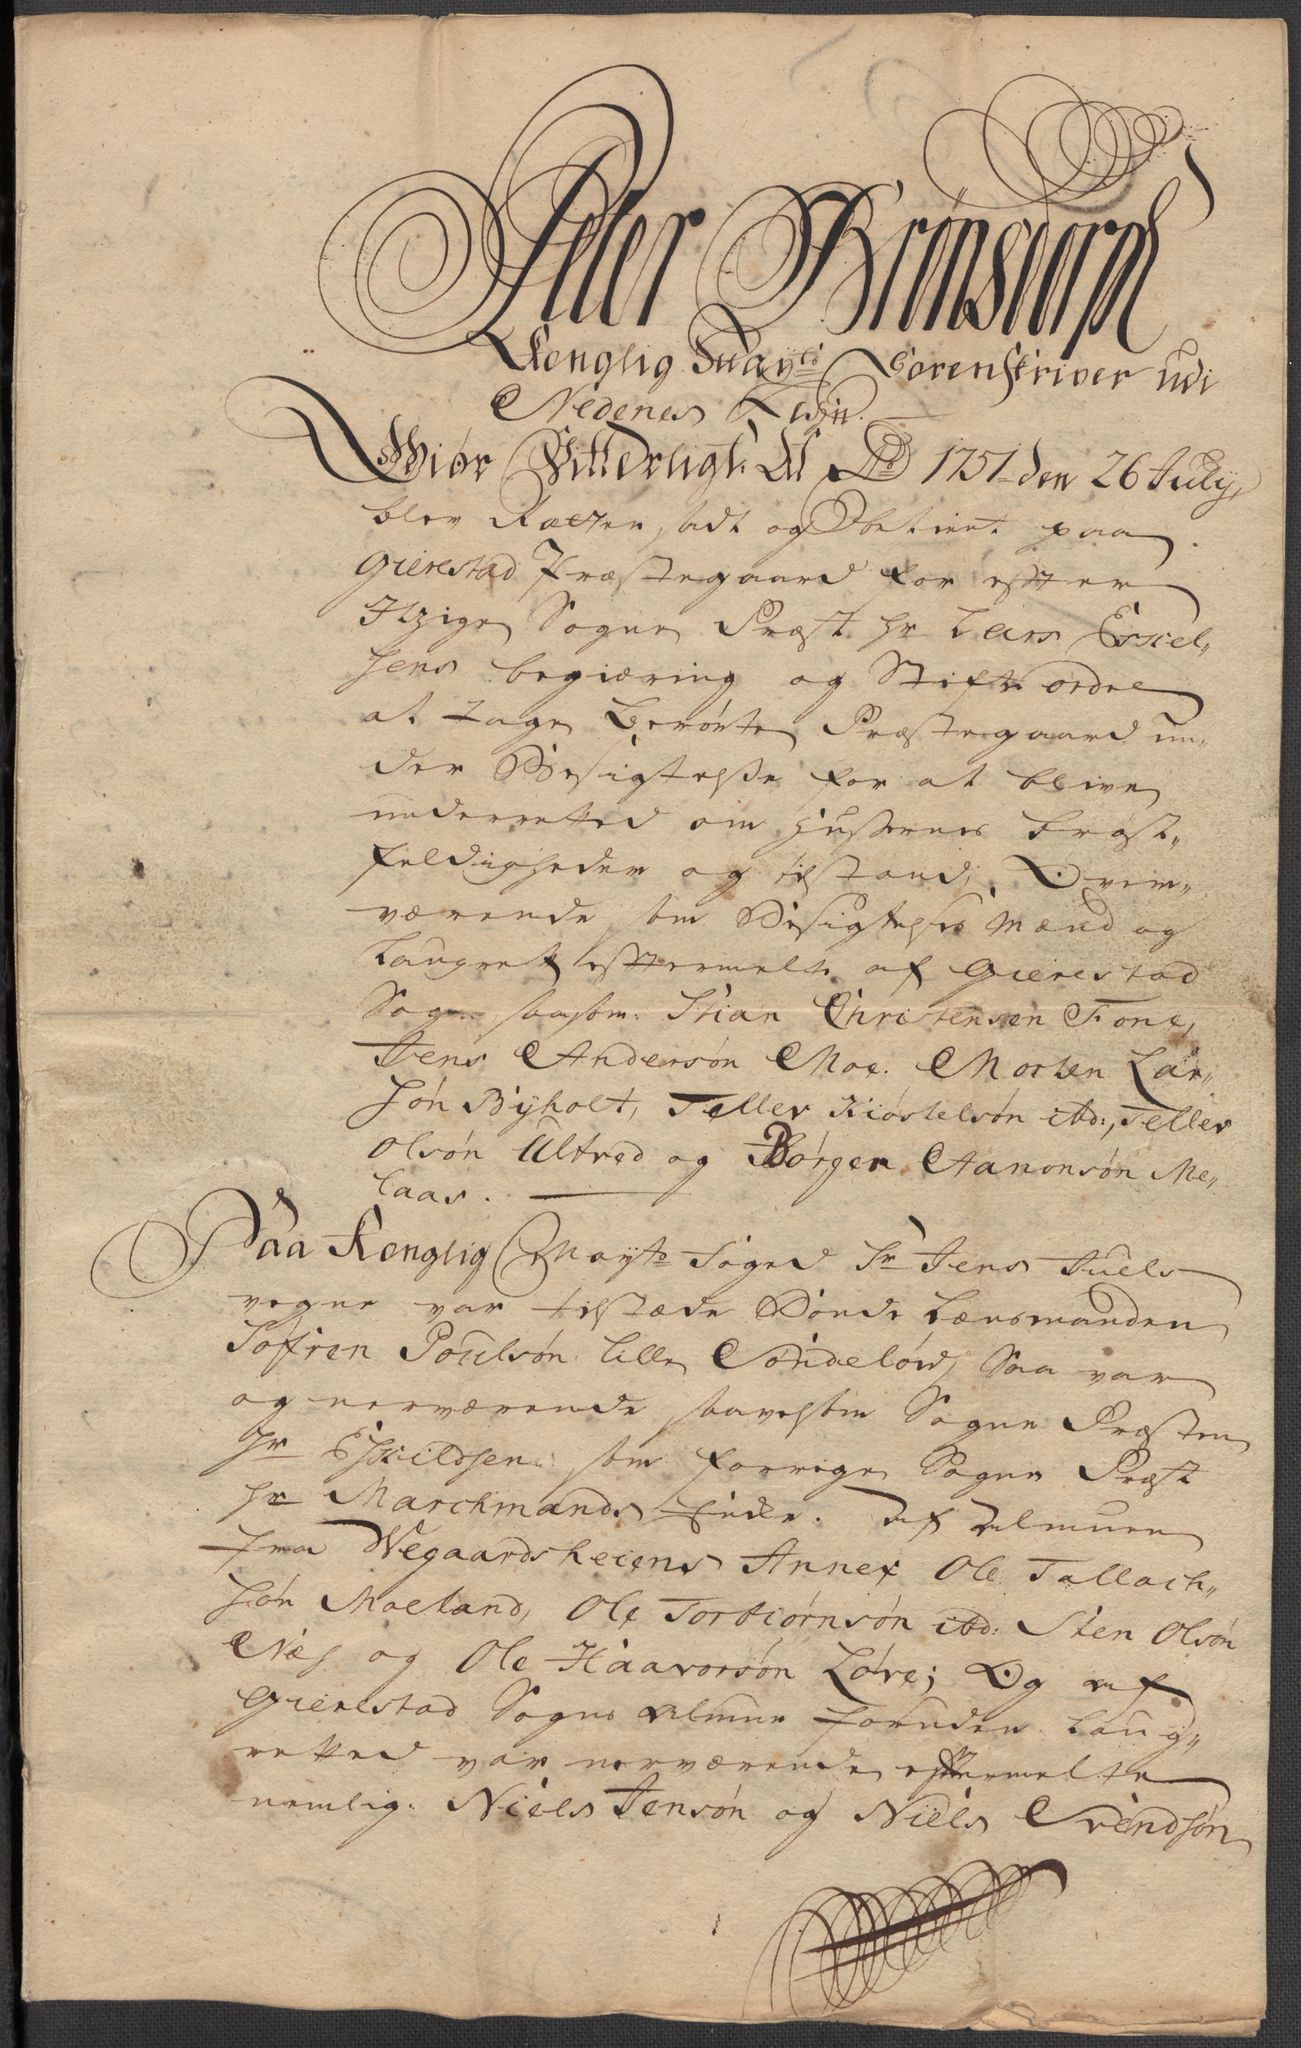 Peter Brønsdorph
Kongelig Mayts Sorenskriver udi
Nedenes Lehn.
Giør Vitterligt: At Ao 1751 den 26 July,
blev Rætten sadt og betient paa
Gierestad Præstegaard for efter
Itzige Sogne Præst hr Lars Eskel„
sens begiæring og Stifts ordre
at tage berørte Præstegaard un„
der Besigtelsse for at blive
underretted om Hussernes brøst„
feldigheder og tilstand; Ovr
værende som Besigtelses Mænd og
Laugrett eftermelte af Gierestad
Sogn saasom: Stian Christensen Fone,
Jens Andersøn Moe. Morten Lar„
søn Byholt, Tellev Kiøstelsøn ibd:, Tellev
Olsøn Ulтved og Børger Aanonsøn Me„
laas.
Paa Konglig Mayts Foged Sr Jens Juels
vegne var tilstæde Bønde Lænsmanden
Søfren Poulsøn Lille Søndeløw, Saa var
og nerværende saavelsom Sogne Præsten
hr Eskildsen som forrige Sogne Præst
hr Marchmands Encke. Af Almuen
fra Wegaardsheiens Annex Ole Tallach„
søn Moeland, Ole Torbiørnsøn ibd: Sten Olsøn
Næs og Ole Haavorsøn Løve; Og af
Gierestad Sogns Almue foruden Laug„
retted var nerværende eftermelte
nemlig: Niels Jensøn og Niels Svendsøn